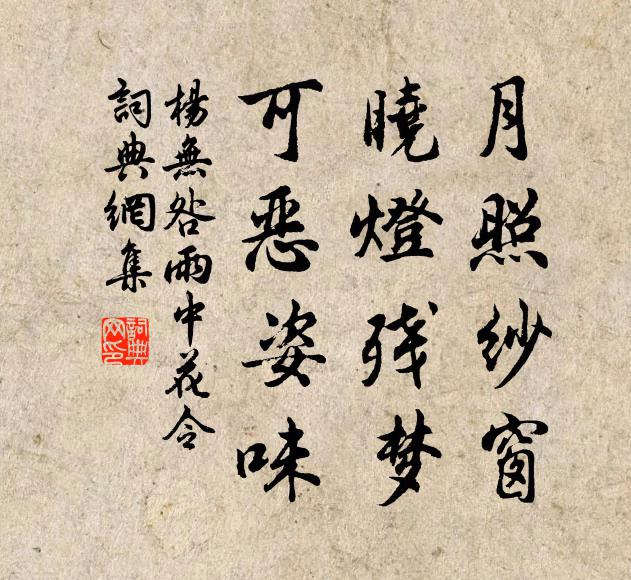 月照纱窗
曉燈残梦
可恶姿味
楊無咎雨中花令
詞典網集
詞典網印